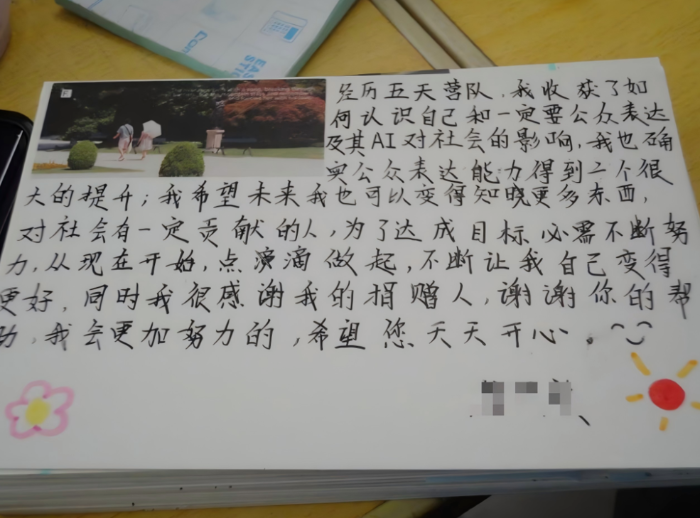 经历五天营队,我收获了如
何认识自己和一定要公众表达
及其AI对社会的影响,我也确
实公众表达能力得到二个很
大的提升;我希望未来我也可以变得知晓更多东西,
对社会有一定贡献的人,为了达成目标必需不断努
力,从现在开始,点滴做起,不断让我自己变得
更好,同时我很感谢我的捐赠人,谢谢你的帮
助,我会更加努力的,希望您天天开心。